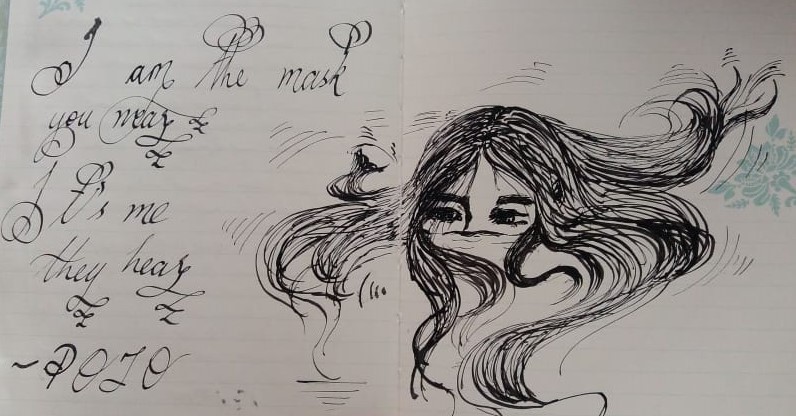 I am the mask
you wear
It's me
they hear
~ POTO